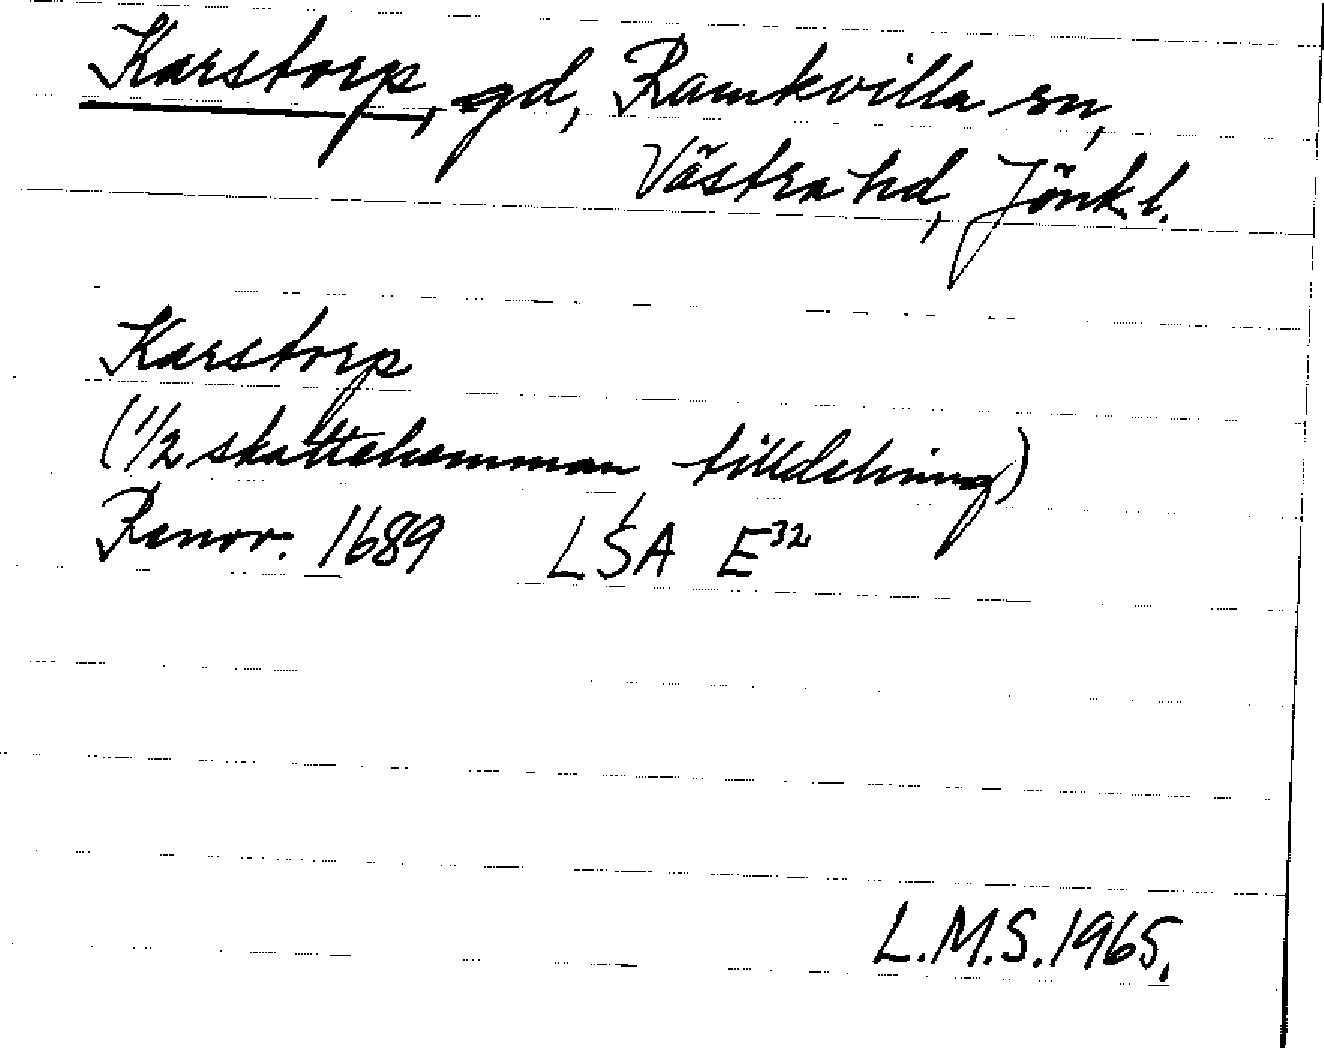 Karstorp, gd, Ramkvilla sn,
Västra hd, Jönk. l.
Karstorp
(1/2 skattehemman tilldelning)
Renov. 1689 LSA E32
L.M.S. 1965.